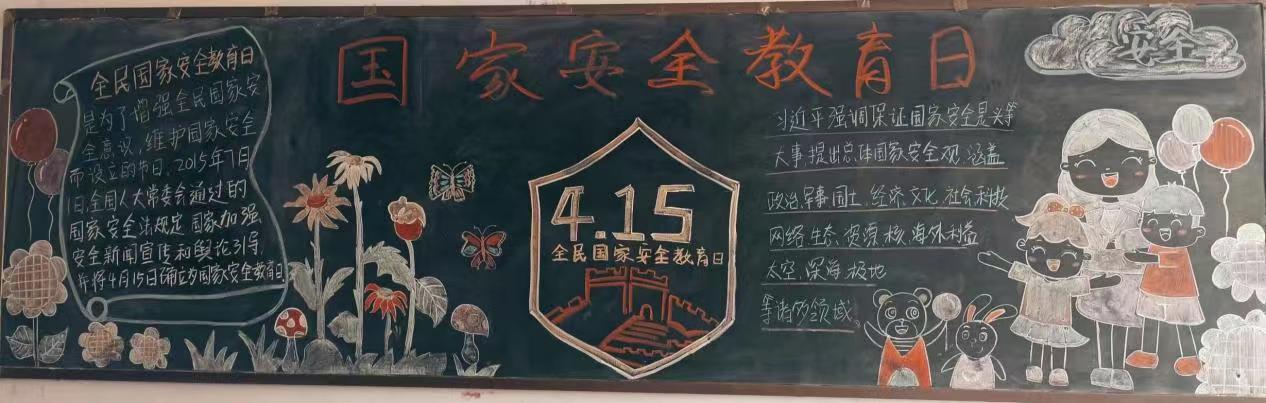 国家安全教育日
安全
全民国家安全教育日
是为了增强全民国家安
全意识，维护国家安全
而设立的节日，2015年7月
1日，全国人大常委会通过的
国家安全法规定国家加强
安全新闻宣传和舆论引导，
并将4月15日确定为国家安全教育日
4.15
全民国家安全教育日
习近平强调保证国家安全是头等
大事，提出总体国家安全观，涵盖
政治、军事、国土、经济、文化、社会、科技、
网络、生态、资源、核、海外利益、
太空、深海、极地
等诸多领域。